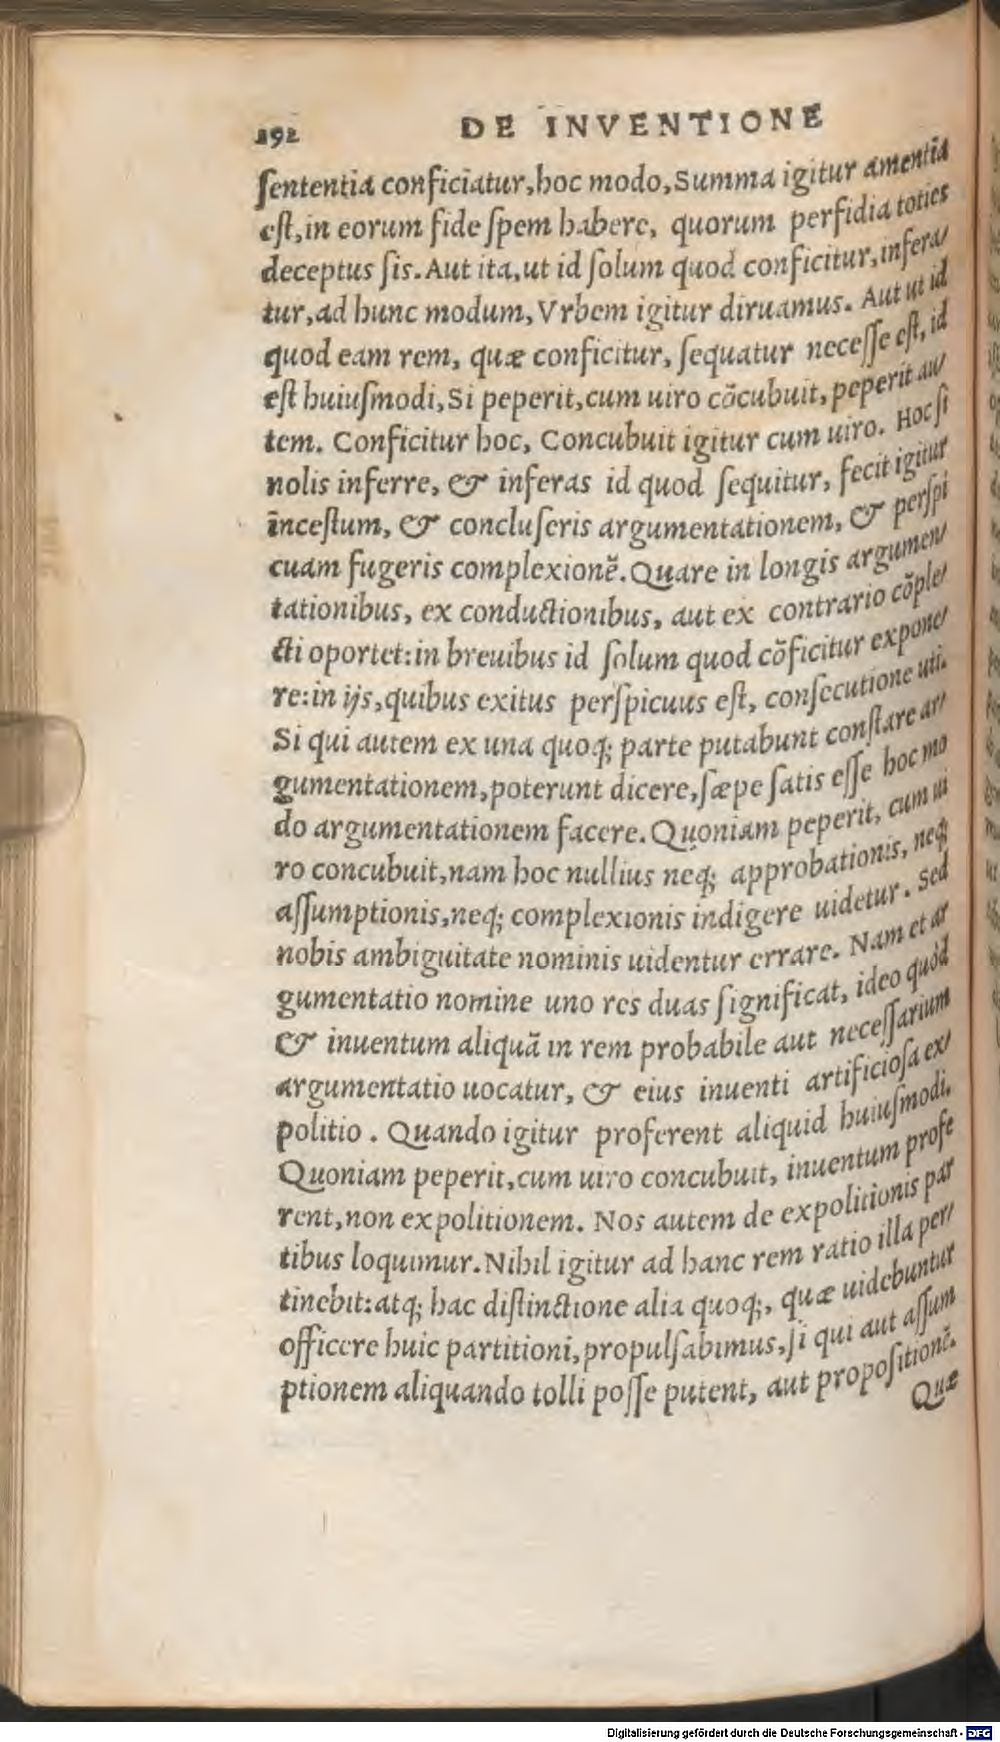 192 DE INVENTIONE
ſententia conficiatur, hoc modo, Summa igitur amentia
eſt, in eorum fide ſpem habere, quorum perfidia toties
deceptus ſis. Aut ita, ut id ſolum quod conficitur, infera/
tur, ad hunc modum, Vrbem igitur diruamus. Aut ut id
quod eam rem, quæ conficitur, ſequatur neceſſe eſt, id
eſt huiuſmodi, Si peperit, cum uiro cõcubuit, peperit au/
tem. Conficitur hoc, Concubuit igitur cum uiro. Hoc ſi
nolis inferre, & inferas id quod ſequitur, fecit igitur
inceſtum, & concluſeris argumentationem, & perſpi
cuam fugeris complexionẽ. Quare in longis argumen/
tationibus, ex conductionibus, aut ex contrario cõple/
cti oportet: in breuibus id ſolum quod cõficitur expone/
re: in ijs, quibus exitus perſpicuus eſt, conſecutione uti.
Si qui autem ex una quoq; parte putabunt conſtare ar/
gumentationem, poterunt dicere, ſæpe ſatis eſſe hoc mo
do argumentationem facere. Quoniam peperit, cum ui
ro concubuit, nam hoc nullius neq; approbationis, neq;
aſſumptionis, neq; complexionis indigere uidetur. Sed
nobis ambiguitate nominis uidentur errare. Nam et ar
gumentatio nomine uno res duas ſignificat, ideo quòd
& inuentum aliquã in rem probabile aut neceſſarium
argumentatio uocatur, & eius inuenti artificioſa ex/
politio. Quando igitur proferent aliquid huiuſmodi.
Quoniam peperit, cum uiro concubuit, inuentum profe
rent, non expolitionem. Nos autem de expolitionis par
tibus loquimur. Nihil igitur ad hanc rem ratio illa per/
tinebit: atq; hac diſtinctione alia quoq;, quæ uidebuntur
officere huic partitioni, propulſabimus, ſi qui aut aſſum
ptionem aliquando tolli poſſe putent, aut propoſitionẽ.
Quæ
Digitalisierung gefördert durch die Deutsche Forschungsgemeinschaft - DFG